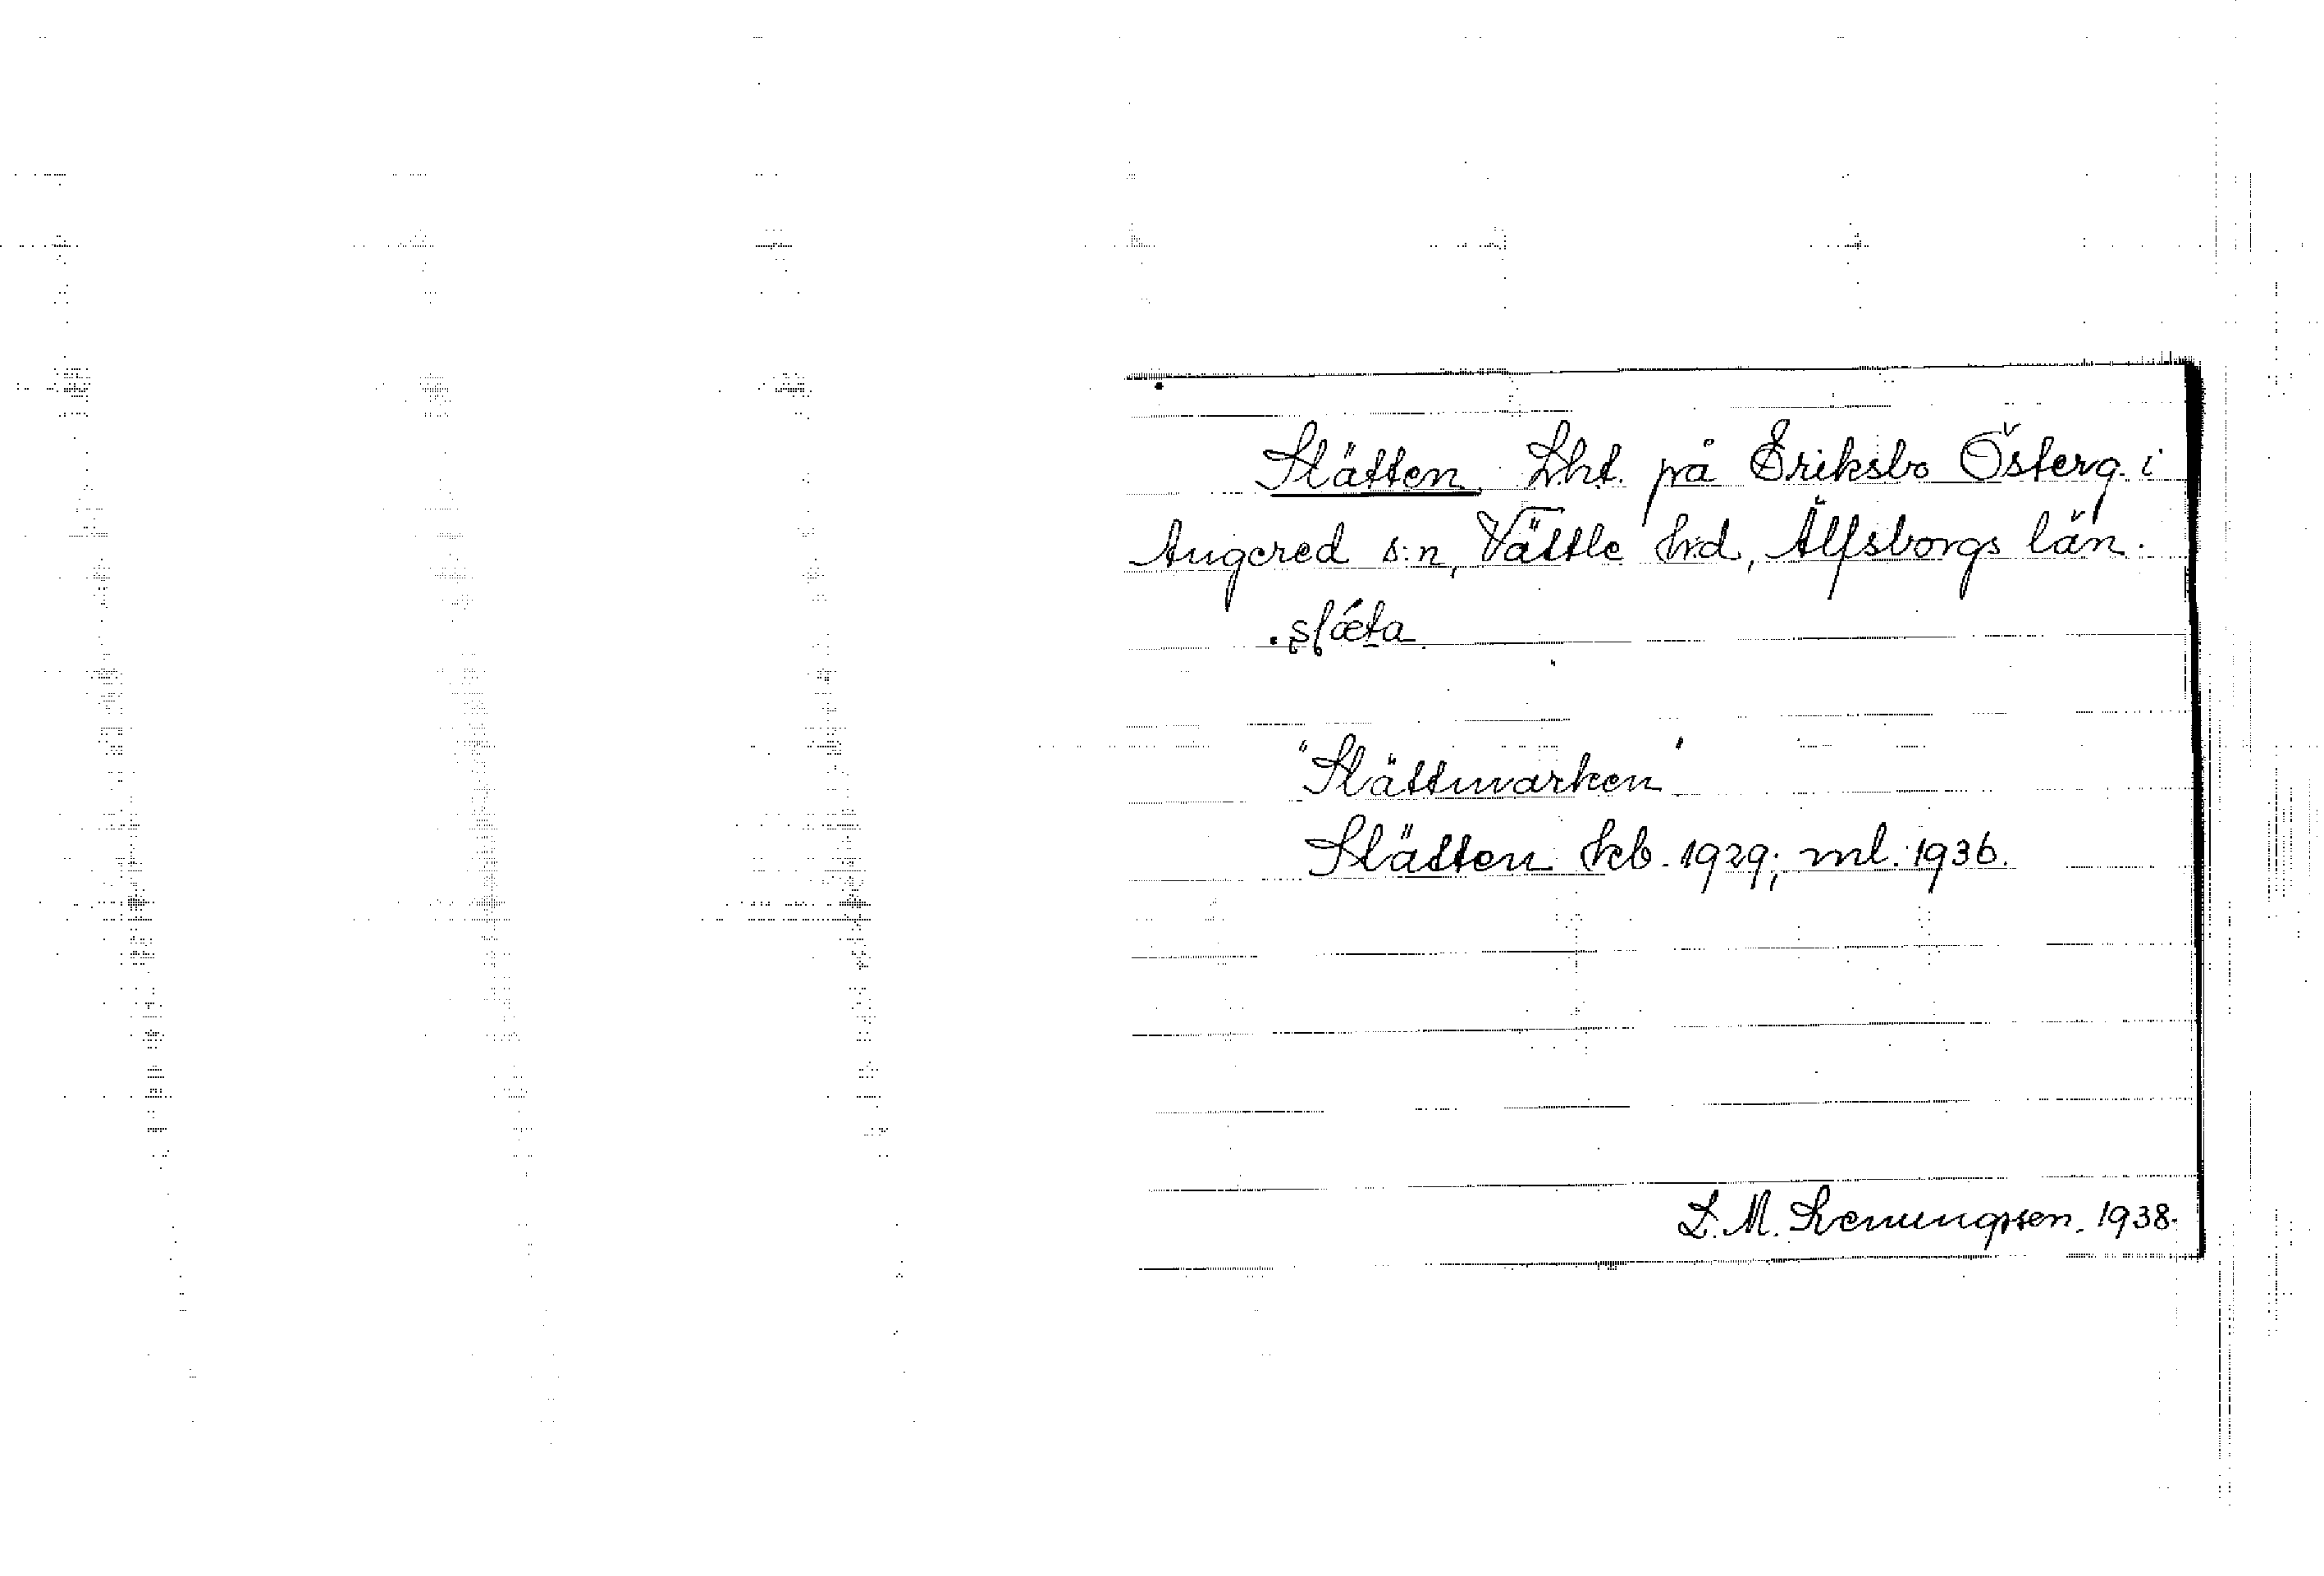 Slätten Lht. på Eriksbo Österg. i
Angered s:n, Vättle hrd, Älfsborgs län.
. slæta
"Slättmarken"
Slätten hcb. 1929; ml. 1936.
L. M. 1938.